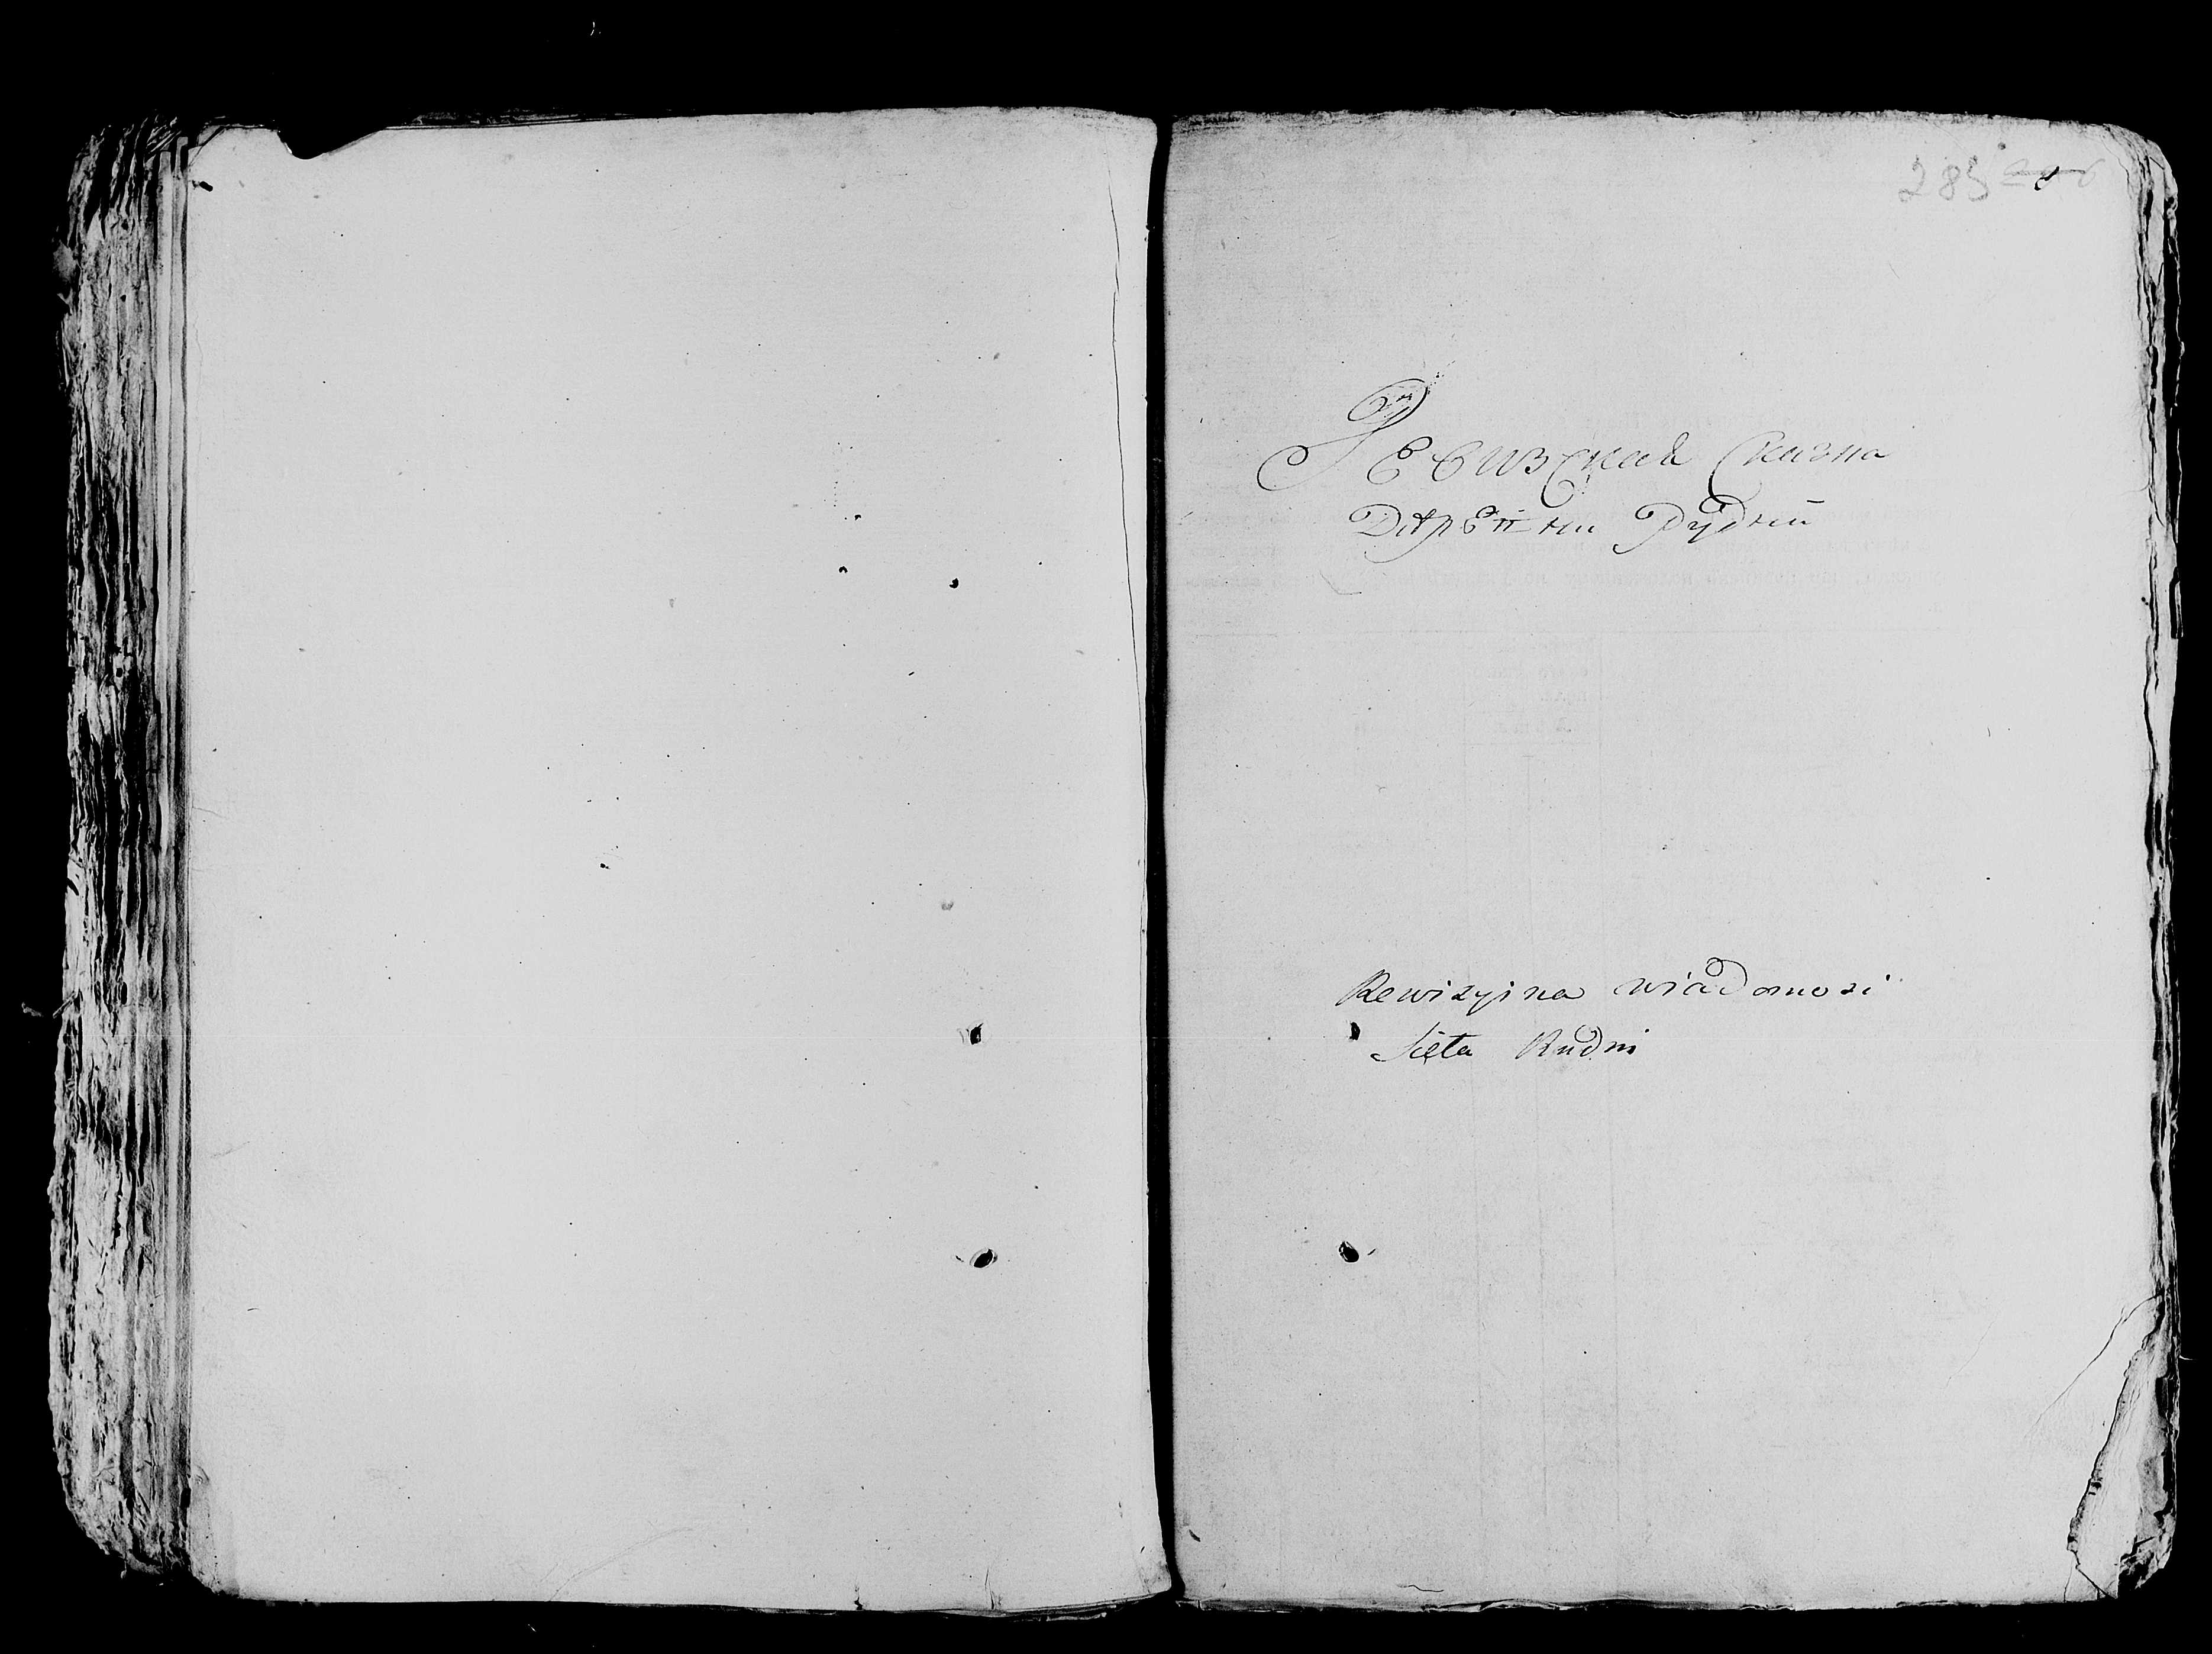 285
Ревизская Сказка
Деревни Рудни
Rewizyina wiadomosi
Sieła Rudni